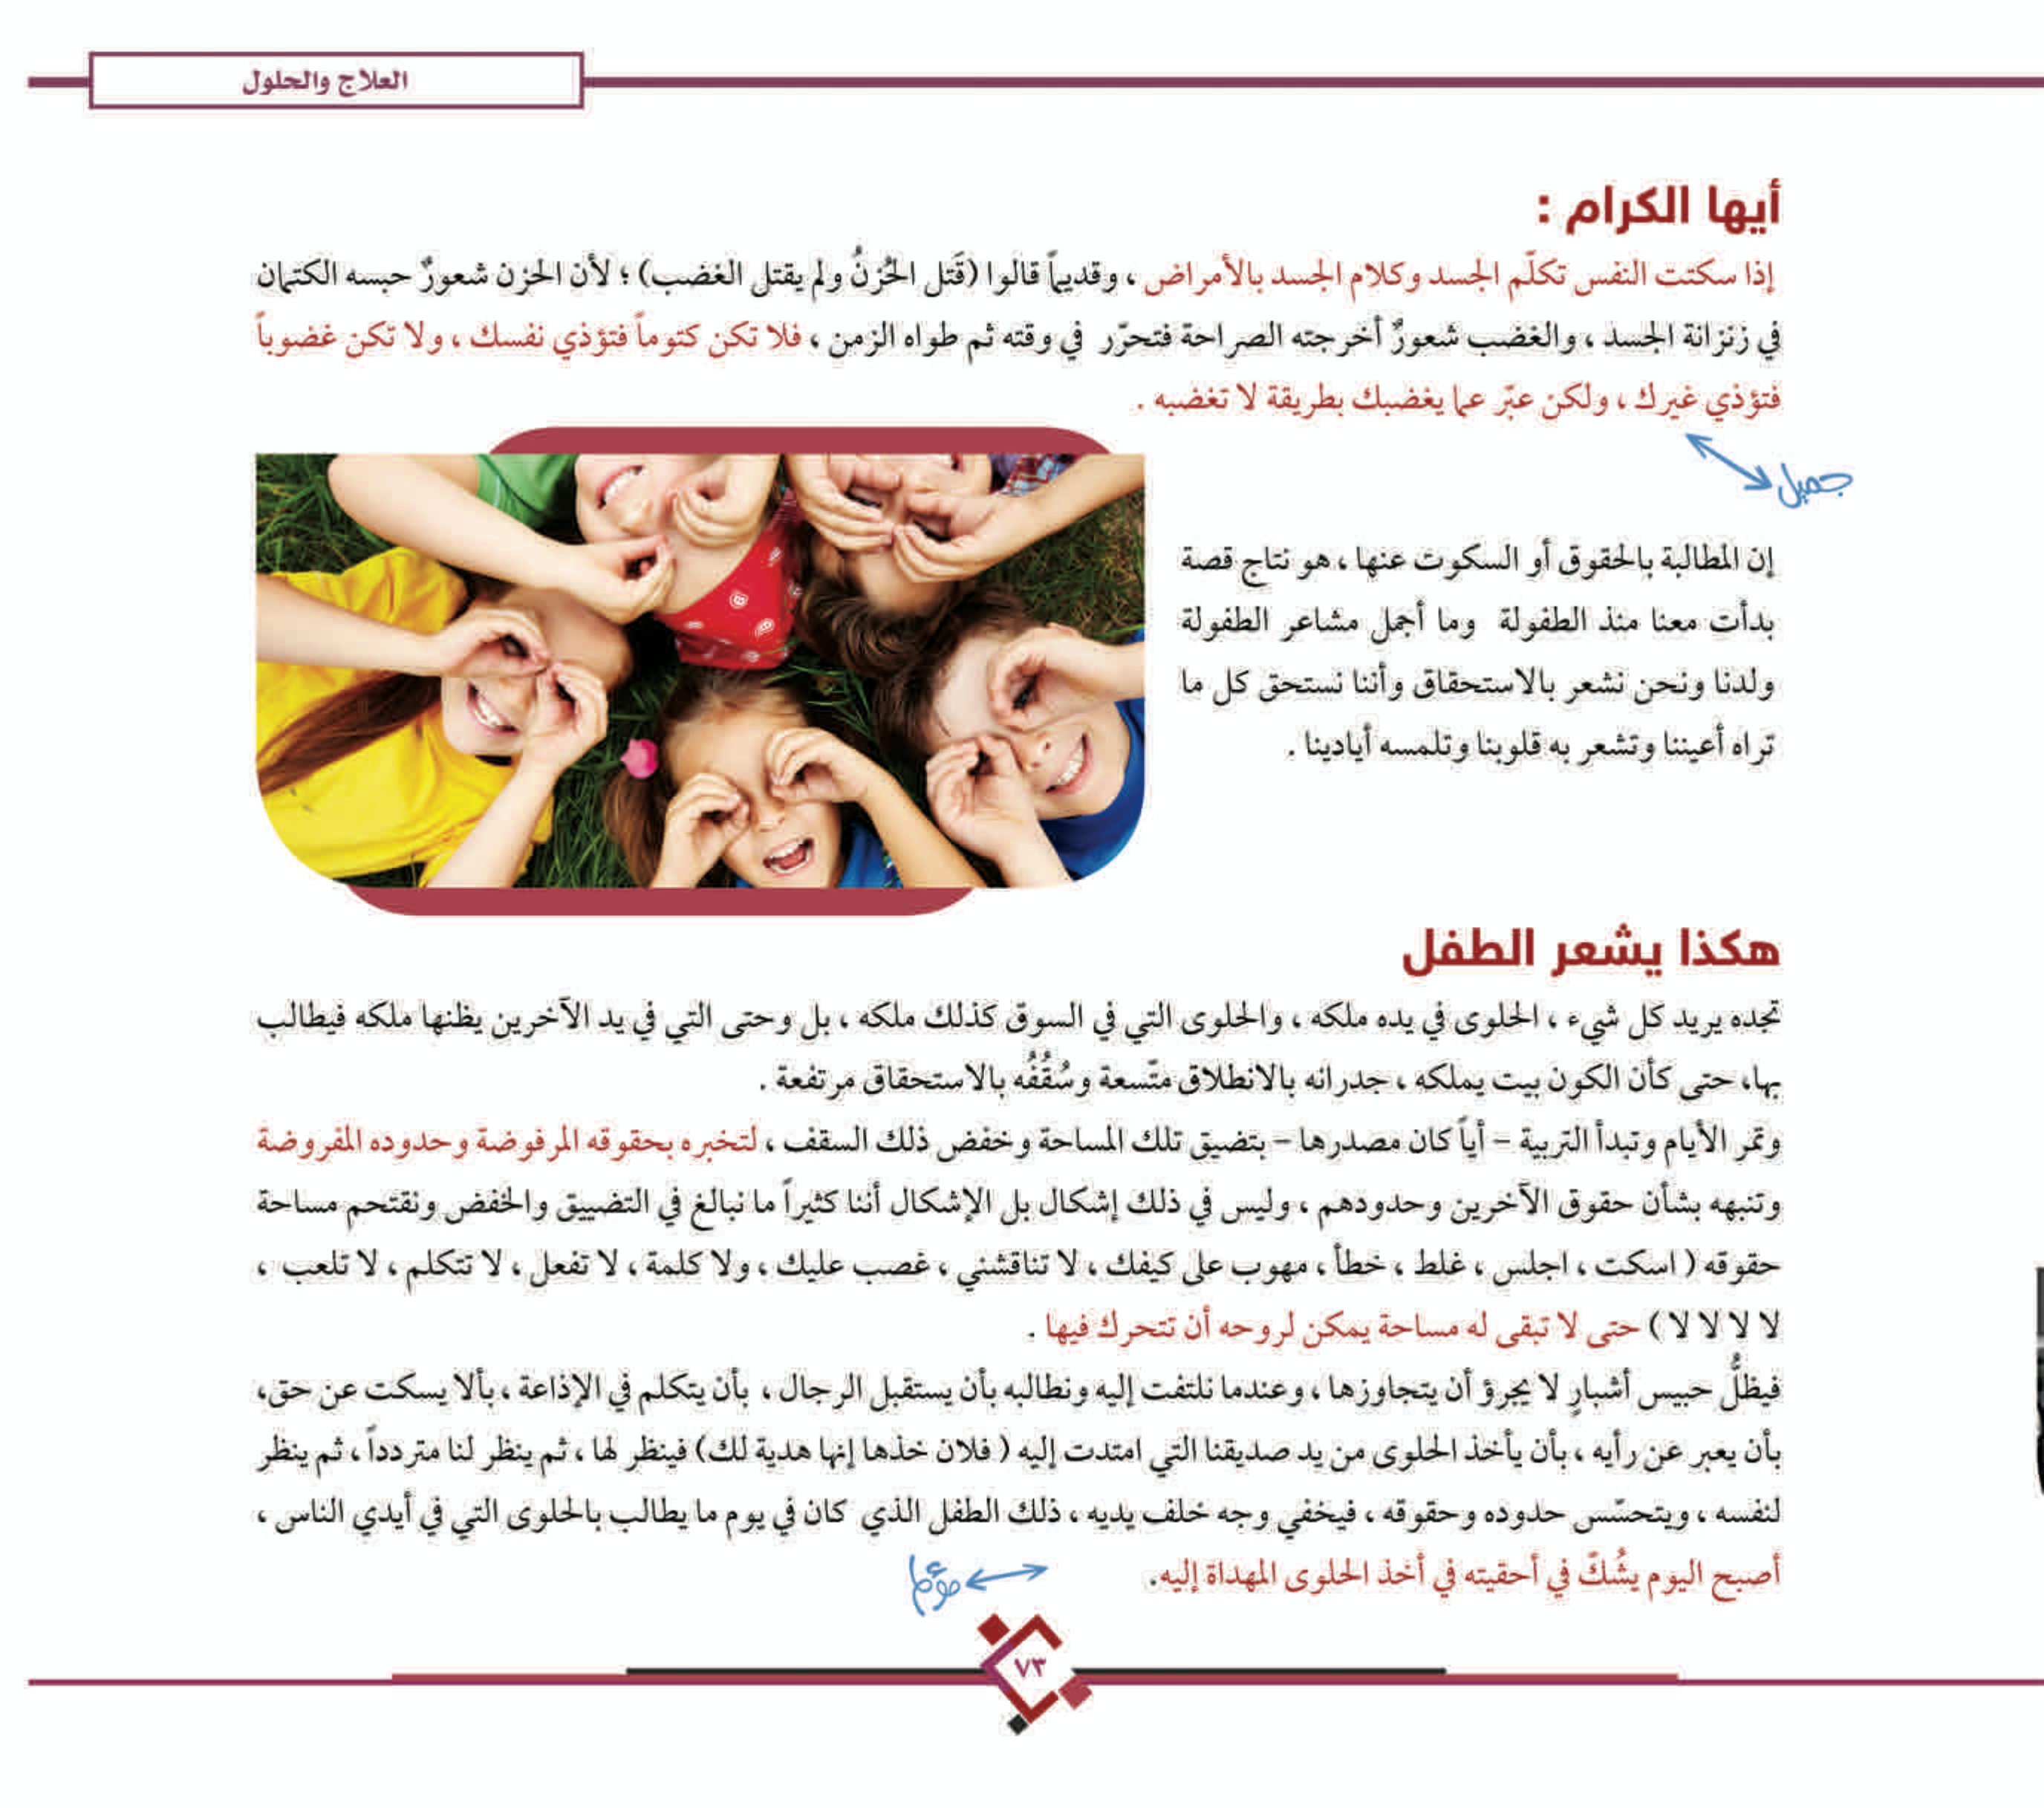 العلاج والحلول
أيها الكرام :
إذا سكتت النفس تكلّم الجسد وكلام الجسد بالأمراض ، وقديماً قالوا (قَتل الحُزنُ ولم يقتل الغضب) ؛ لأن الحزن شعورٌ حبسه الكتمان
في زنزانة الجسد ، والغضب شعورٌ أخرجته الصراحة فتحرّر في وقته ثم طواه الزمن ، فلا تكن كتوماً فتؤذي نفسك ، ولا تكن غضوباً
فتؤذي غيرك ، ولكن عبّر عما يغضبك بطريقة لا تغضبه .
جميل
إن المطالبة بالحقوق أو السكوت عنها ، هو نتاج قصة
بدأت معنا منذ الطفولة وما أجمل مشاعر الطفولة
ولدنا ونحن نشعر بالاستحقاق وأننا نستحق كل ما
تراه أعيننا وتشعر به قلوبنا وتلمسه أيادينا .
هكذا يشعر الطفل
تجده يريد كل شيء ، الحلوى في يده ملكه ، والحلوى التي في السوق كذلك ملكه ، بل وحتى التي في يد الآخرين يظنها ملكه فيطالب
بها، حتى كأن الكون بيت يملكه ، جدرانه بالانطلاق متّسعة وسُقُفُه بالاستحقاق مرتفعة .
وتمر الأيام وتبدأ التربية – أياً كان مصدرها – بتضيق تلك المساحة وخفض ذلك السقف ، لتخبره بحقوقه المرفوضة وحدوده المفروضة
وتنبهه بشأن حقوق الآخرين وحدودهم ، وليس في ذلك إشكال بل الإشكال أننا كثيراً ما نبالغ في التضييق والخفض ونقتحم مساحة
حقوقه ( اسكت ، اجلس ، غلط ، خطأ ، مهوب على كيفك ، لا تناقشني ، غصب عليك ، ولا كلمة ، لا تفعل ، لا تتكلم ، لا تلعب ،
لا لا لا لا ) حتى لا تبقى له مساحة يمكن لروحه أن تتحرك فيها .
فيظلُّ حبيس أشبارٍ لا يجرؤ أن يتجاوزها ، وعندما نلتفت إليه ونطالبه بأن يستقبل الرجال ، بأن يتكلم في الإذاعة ، بألا يسكت عن حق،
بأن يعبر عن رأيه ، بأن يأخذ الحلوى من يد صديقنا التي امتدت إليه ( فلان خذها إنها هدية لك) فينظر لها ، ثم ينظر لنا متردداً ، ثم ينظر
لنفسه ، ويتحسّس حدوده وحقوقه ، فيخفي وجه خلف يديه ، ذلك الطفل الذي كان في يوم ما يطالب بالحلوى التي في أيدي الناس ،
أصبح اليوم يشُكّ في أحقيته في أخذ الحلوى المهداة إليه.
مؤلم
٧٣